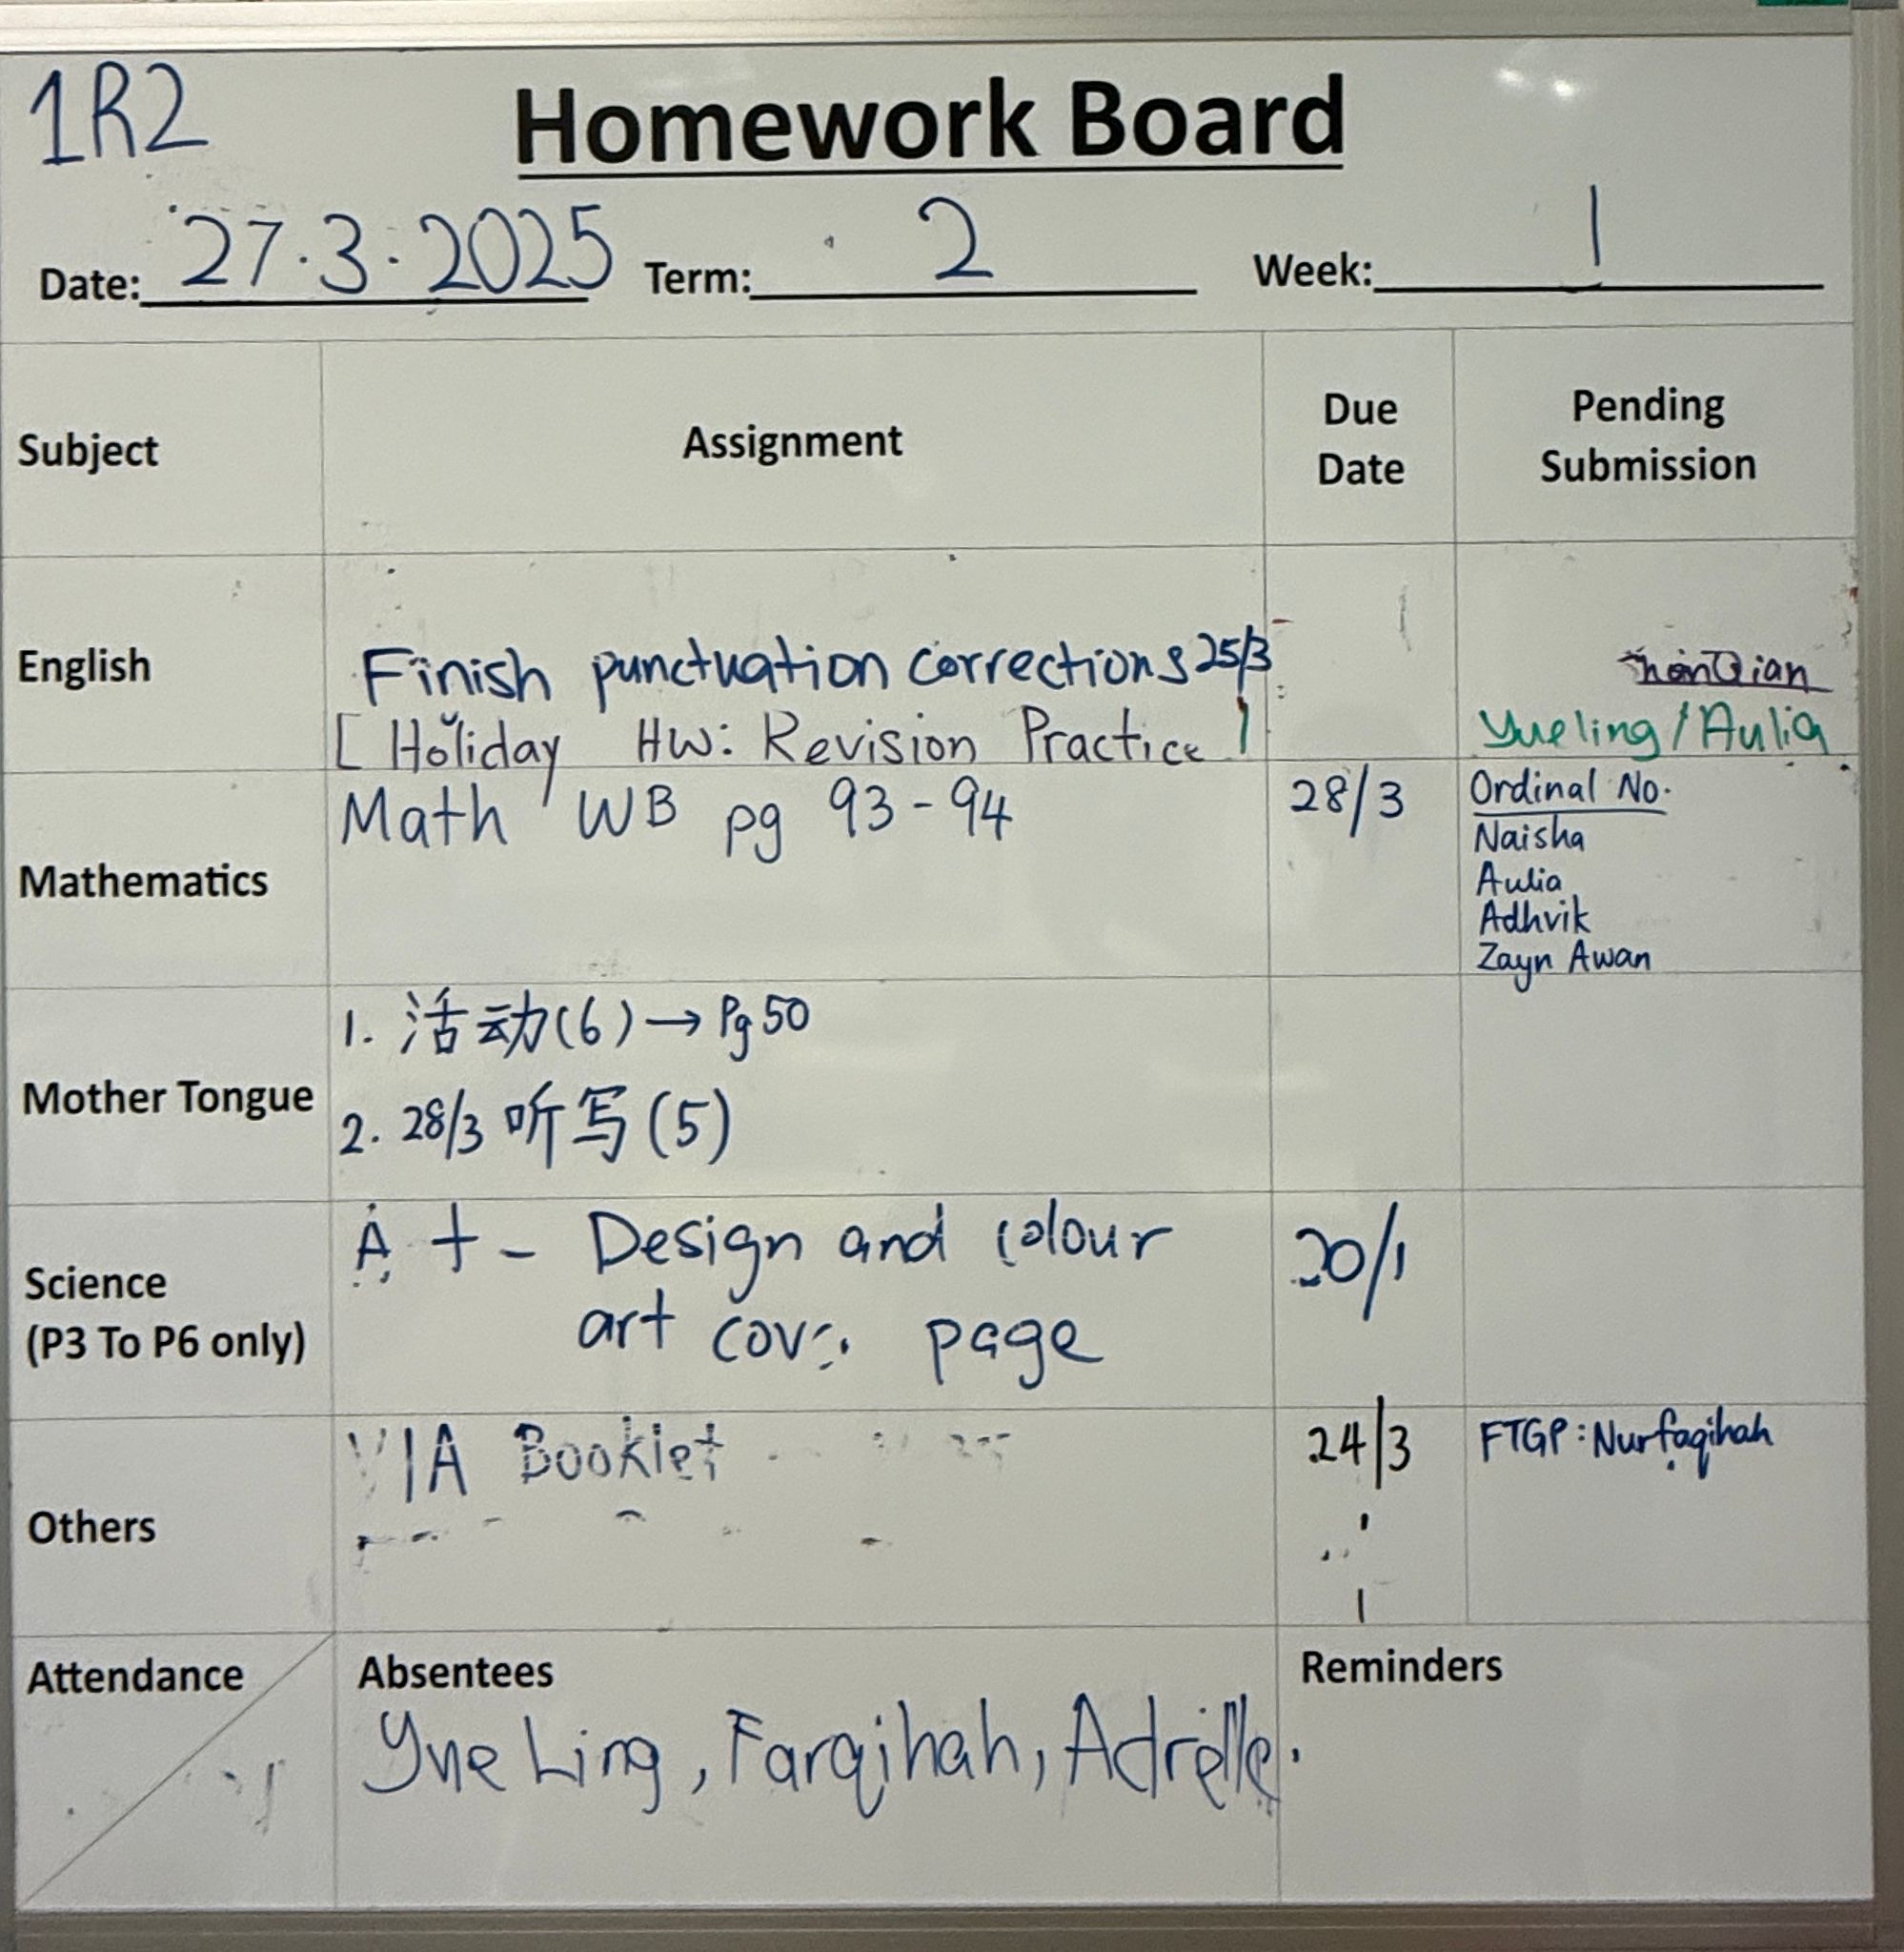 1R2
Homework Board
Date: 27.3.2025 Term: 2 Week: 1
Subject Assignment Due Date Pending Submission
English
Finish punctuation corrections 25/3
[Holiday HW: Revision Practice]
Yueling/Aulia
Mathematics
Math WB pg 93-94
28/3
Ordinal No.
Naisha
Aulia
Adhvik
Zayn Awan
Mother Tongue
1. 活动(6)→Pg 50
2. 28/3 听写(5)
Science
(P3 To P6 only)
Design and colour
art page
20/1
Others
VIA Booklet
24/3
FTGP: Nurfaqihah
Attendance
Absentees
Yue Ling, Farqihah, Adrelle.
Reminders